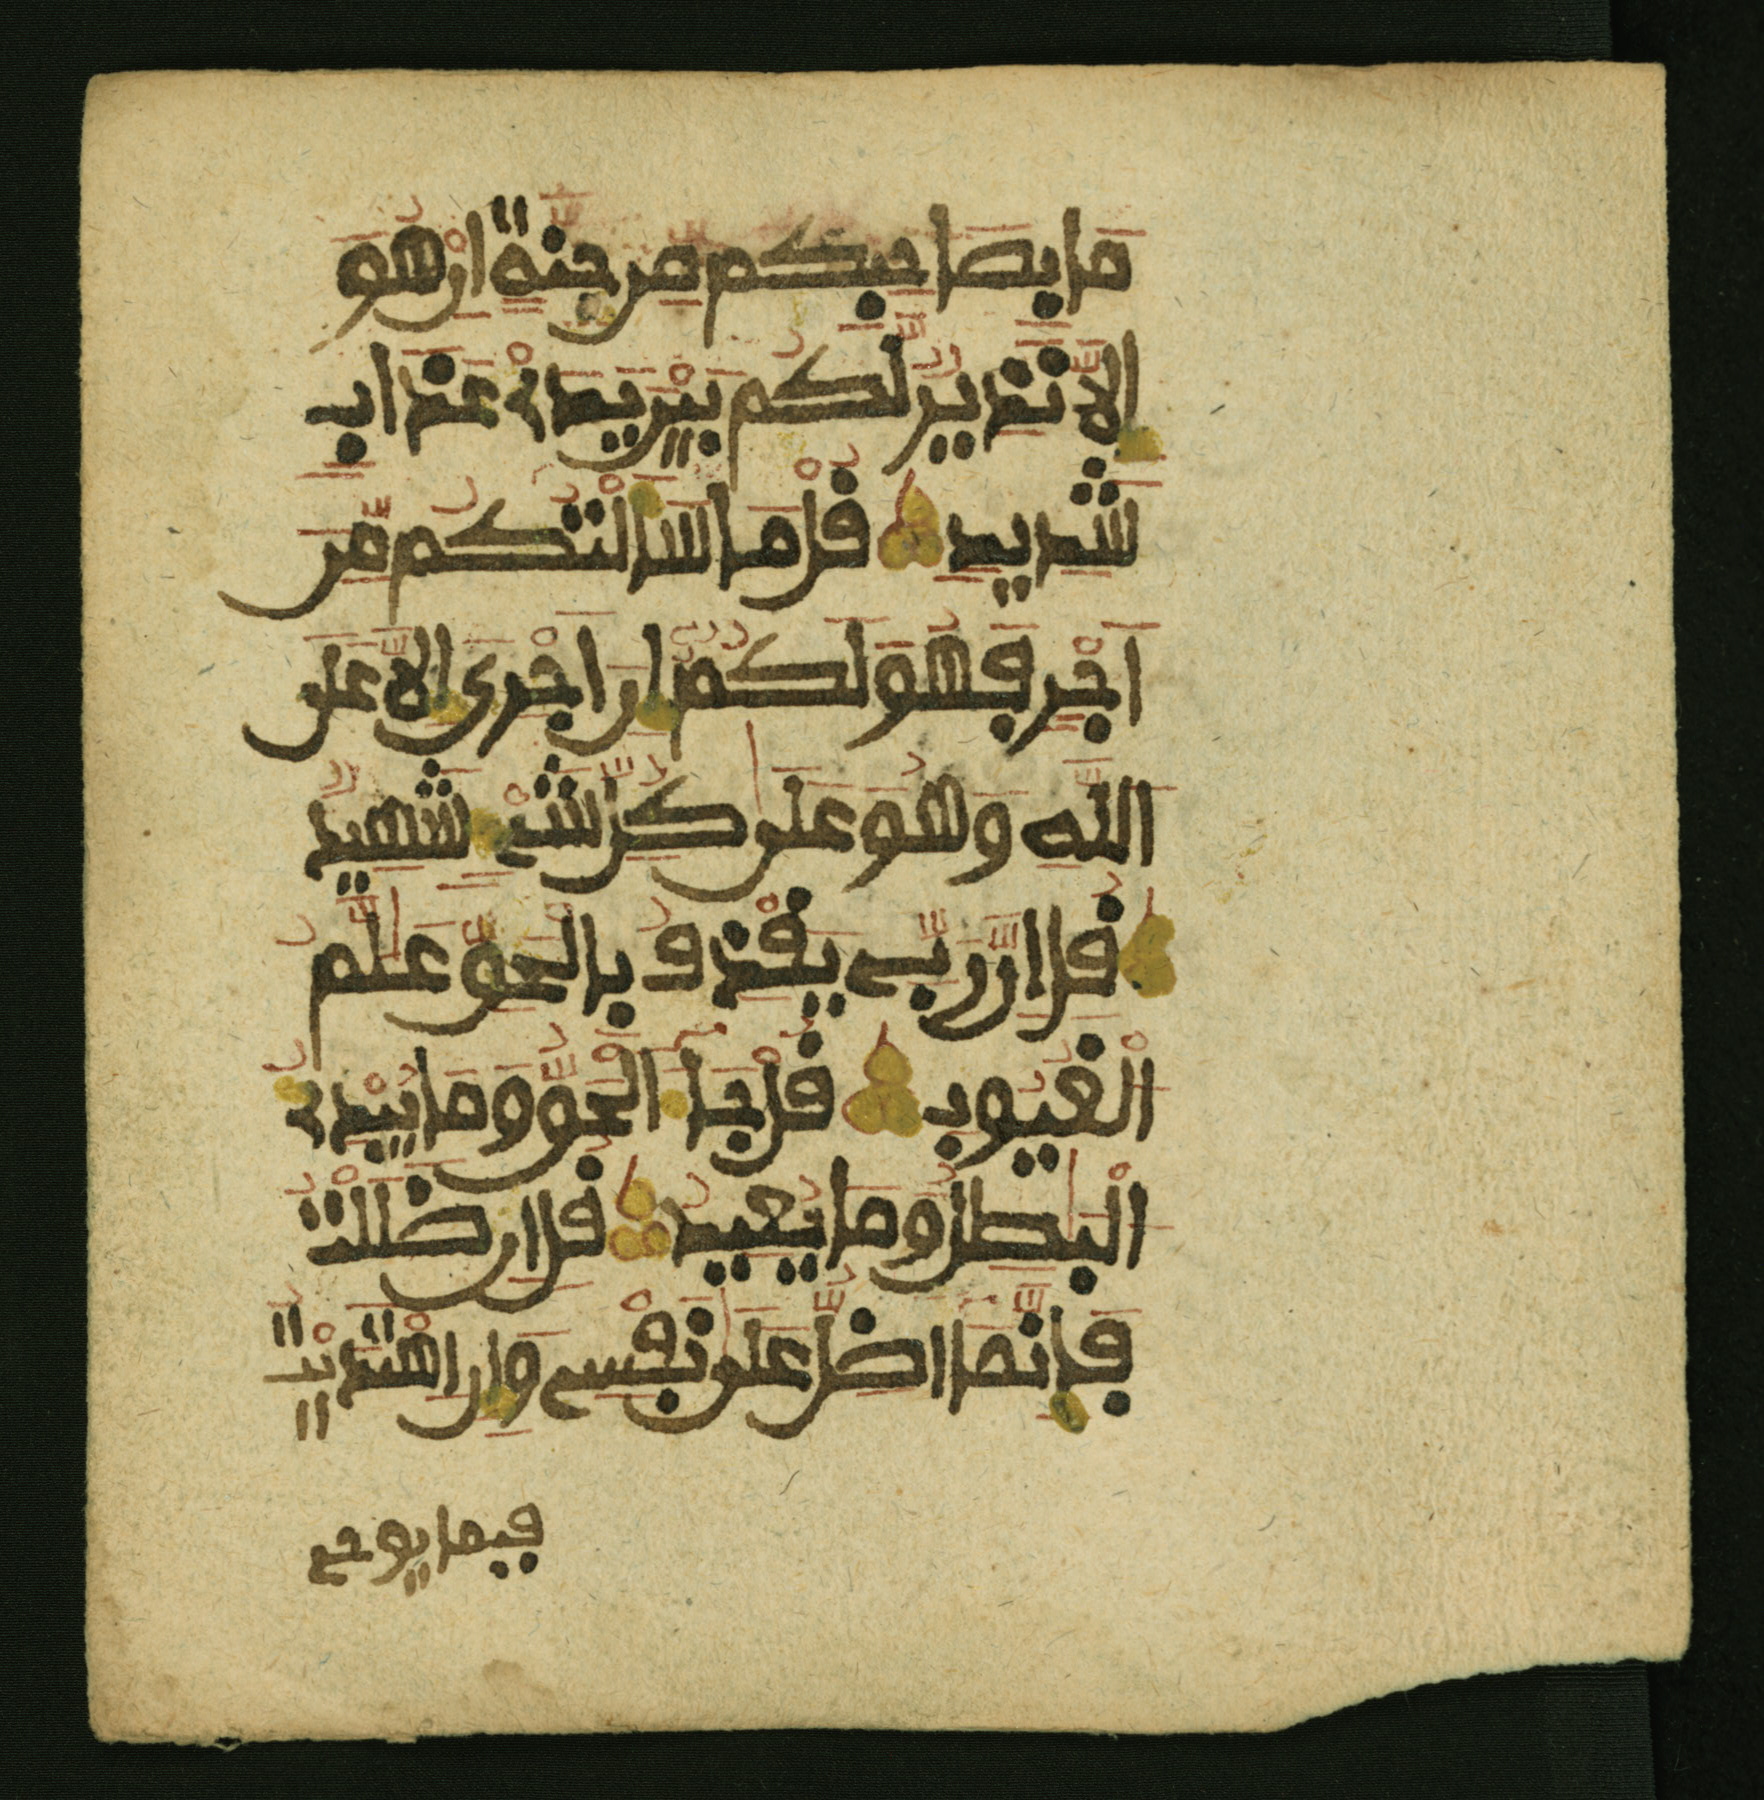 مَا بِصَاحِبِكُم مِّن جِنَّةٍ اِنْ هُوَ
إِلَّا نَذِيرٌ لَّكُم بَيْنَ يَدَےْ عَذَابٍ
شَدِيدٍ قُلْ مَا سَأَلْتُكُم مِّنَ
اَجْرٍ فَهُوَ لَكُمُ إِنَ اَجْرِيَ إِلَّا عَلَى
اَللَّهِ وَهُوَ عَلَىٰ كُلِّ شَےْءٍ شَهِيدٌ
قُلِ اِنَّ رَبِّے يَقْذِفُ بِالْحَقِّ عَلَّٰمُ
اُلْغُيُوبِ قُلْ جَآءَ اَلْحَقُّ وَمَا يُبْدِۓُ
اُلْبَٰطِلُ وَمَا يُعِيدُ قُلِ اِن ضَلَلْتُ
فَإِنَّمَا أَضِلُّ عَلَىٰ نَفْسِے وَإِنِ اِهْتَدَيْتُ
فيما يوحے